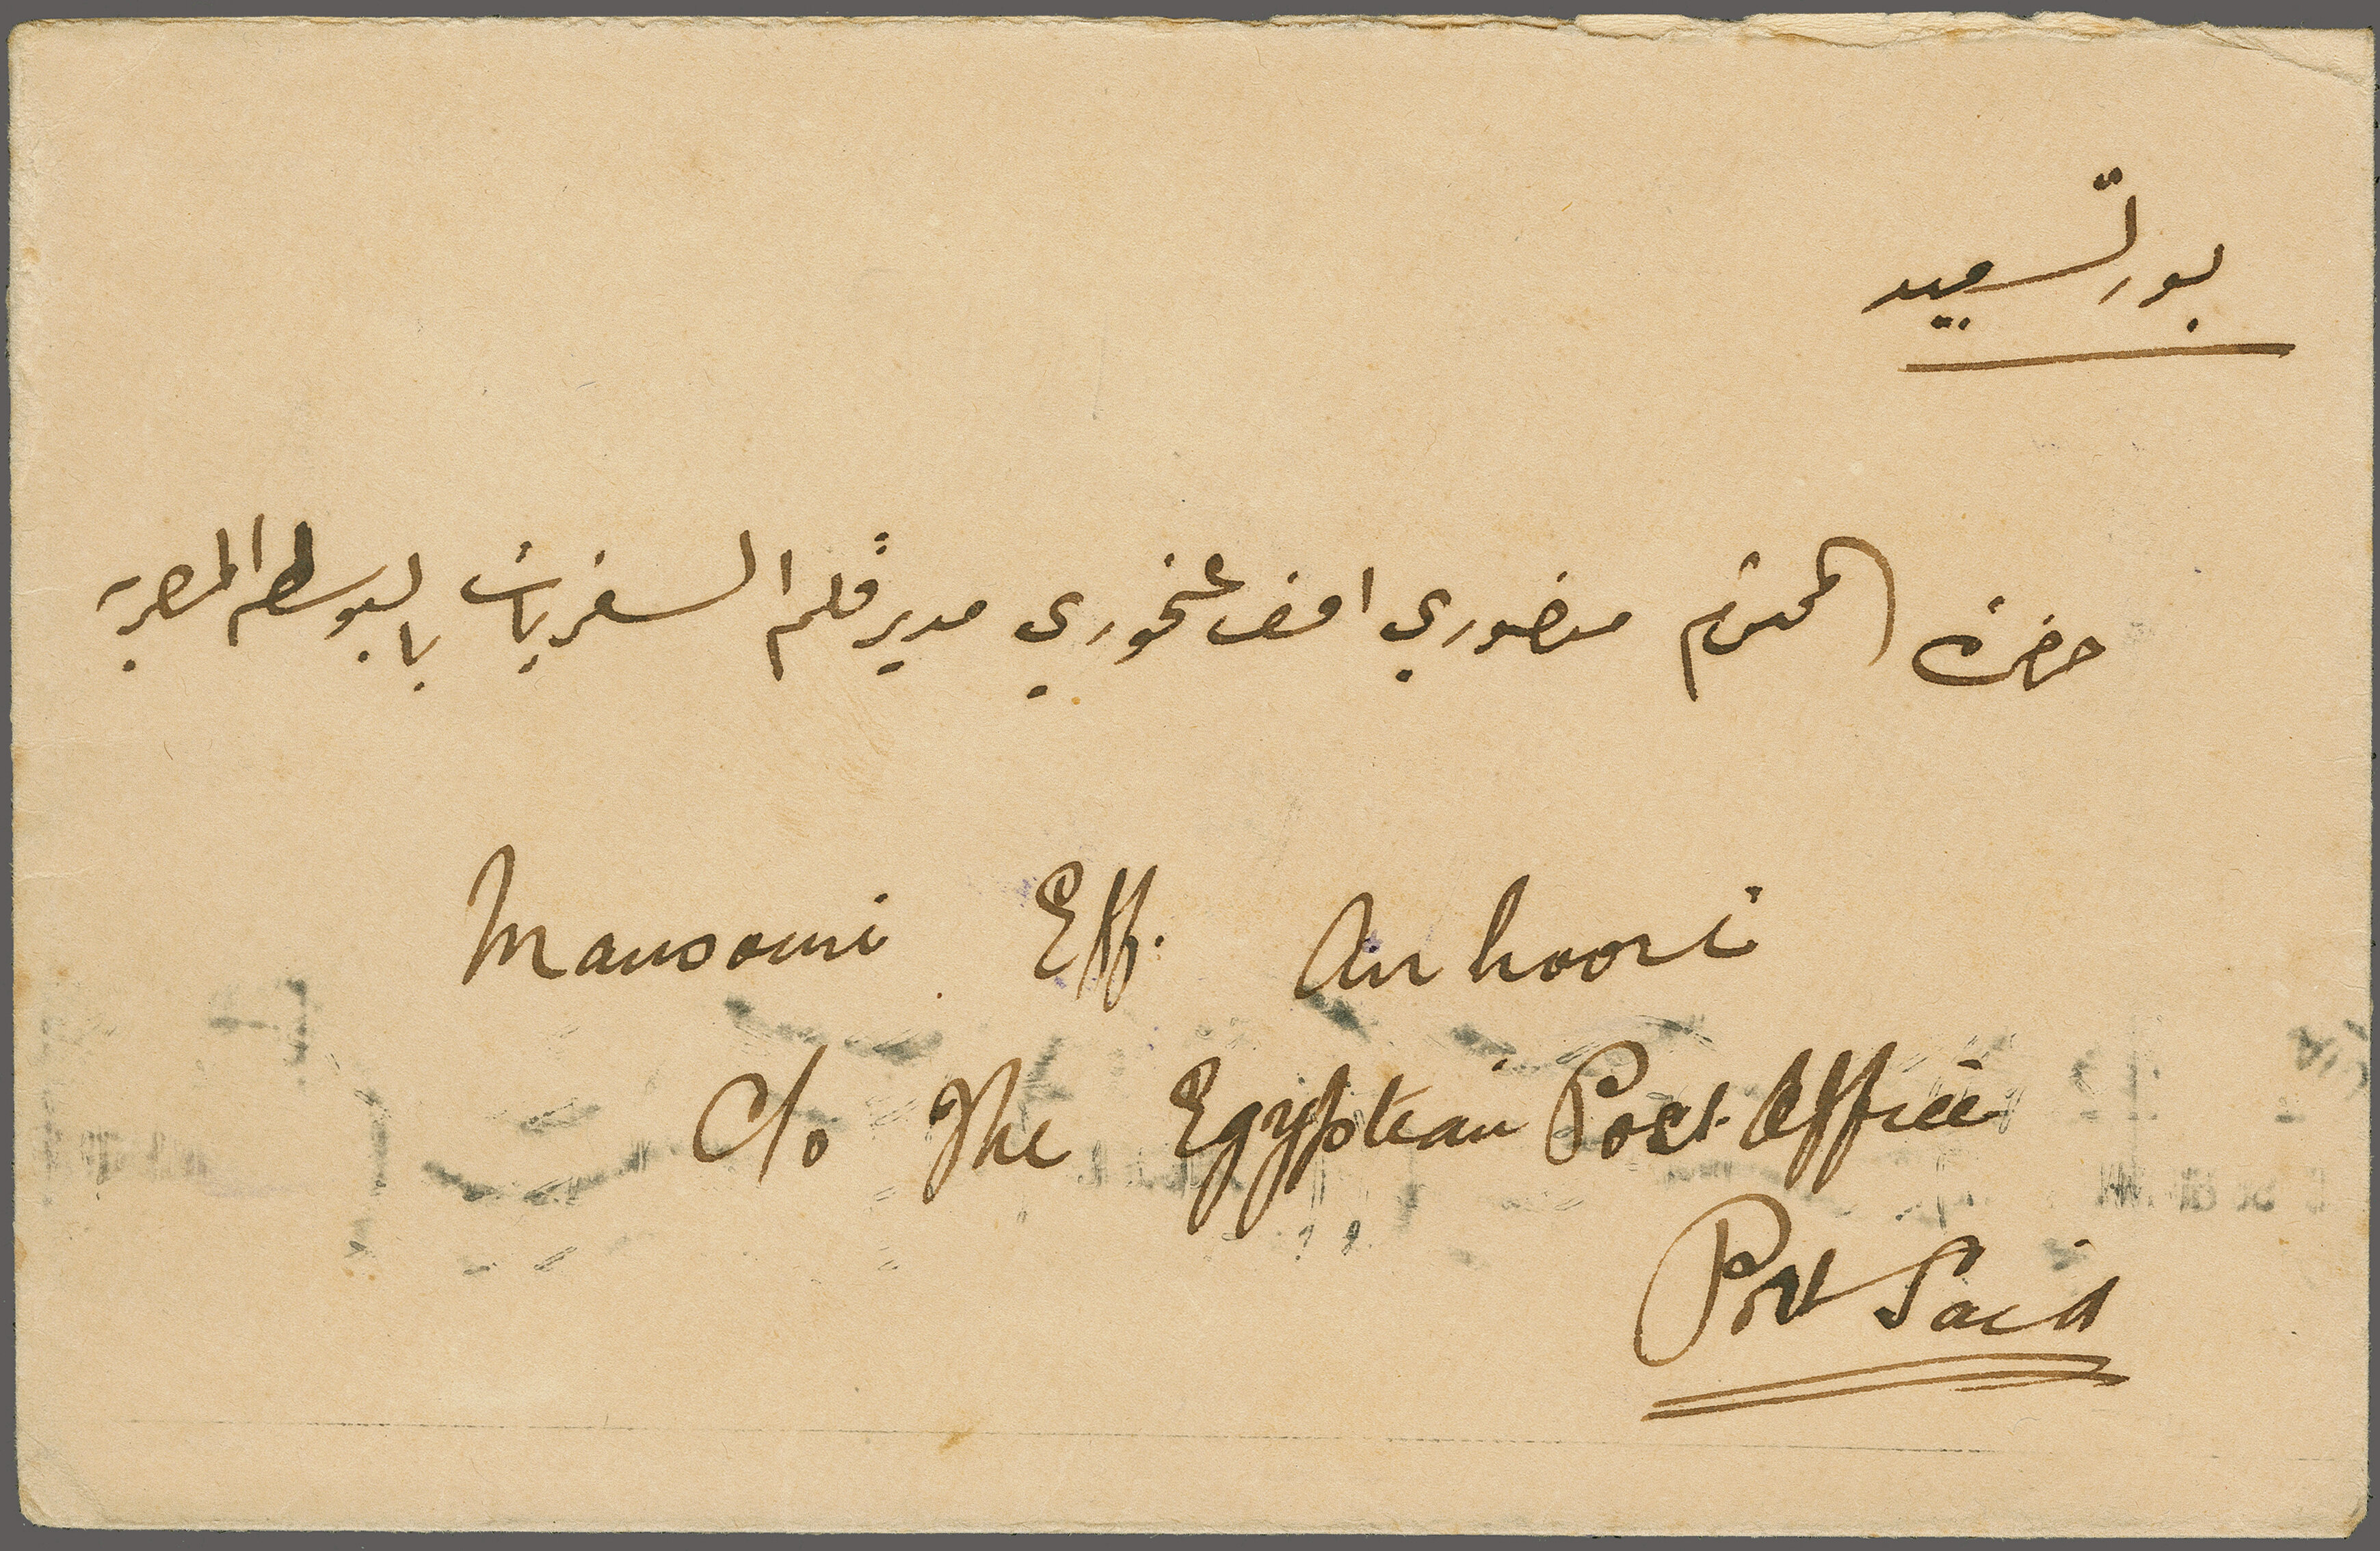 بورتسعيد
حضرة المحترم منصوري افند عنحوري مدير قلم السفريات بالبوسطه المصرية
Mansouri Eff. Anhoori
C/o The Egyptian Post Office
Port Said